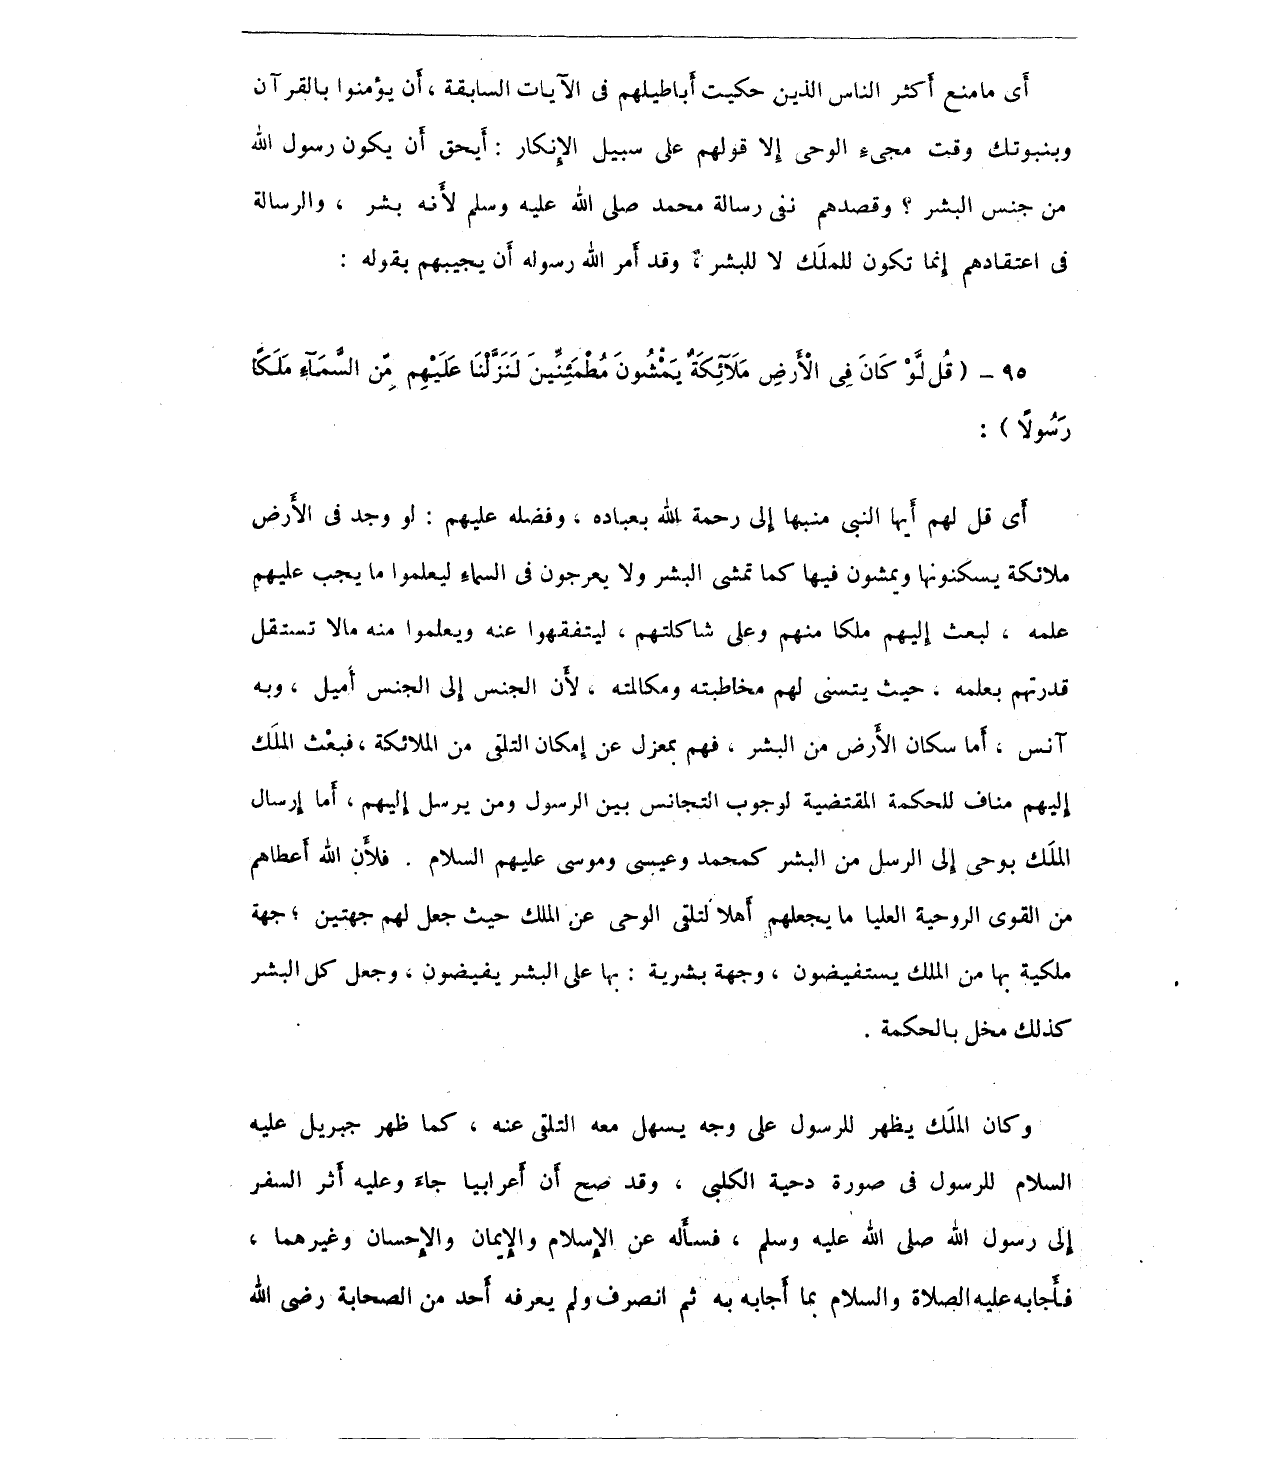 أى مامنع أكثر الناس الذين حكيت أباطيلهم فى الآيات السابقة ، أن يؤمنوا بالقرآن
وبنبوتك وقت مجىء الوحى إلا قولهم على سبيل الإنكار : أيحق أن يكون رسول الله
من جنس البشر ؟ وقصدهم نفى رسالة محمد صلى الله عليه وسلم لأنه بشر ، والرسالة
فى اعتقادهم إنما تكون للملَك لا للبشر ، وقد أمر الله رسوله أن يجيبهم بقوله :
٩٥ - ( قُل لَّوْ كَانَ فِى الْأَرْضِ مَلَآئِكَةٌ يَمْشُونَ مُطْمَئِنِّينَ لَنَزَّلْنَا عَلَيْهِم مِّن السَّمَآءِ مَلَكًا
رَسُولًا ) :
أى قل لهم أيها النبى منبها إلى رحمة الله بعباده ، وفضله عليهم : لو وجد فى الأرض
ملائكة يسكنونها ويمشون فيها كما تمشى البشر ولا يعرجون فى السماء ليعلموا ما يجب عليهم
علمه ، لبعث إليهم ملكا منهم وعلى شاكلتهم ، ليتفقهوا عنه ويعلموا منه مالا تستقل
قدرتهم بعلمه ، حيث يتسنى لهم مخاطبته ومكالمته ، لأن الجنس إلى الجنس أميل ، وبه
آنس ، أما سكان الأرض من البشر ، فهم بمعزل عن إمكان التلقى من الملائكة ، فبعْث الملَك
إليهم مناف للحكمة المقتضية لوجوب التجانس بين الرسول ومن يرسل إليهم ، أما إرسال
الملَك بوحى إلى الرسل من البشر كمحمد وعيسى وموسى عليهم السلام . فلأن الله أعطاهم
من القوى الروحية العليا ما يجعلهم أهلا لتلقى الوحى عن الملك حيث جعل لهم جهتين ؛ جهة
ملكية بها من الملك يستفيضون ، وجهة بشرية : بها على البشر يفيضون ، وجعل كل البشر
كذلك مخل بالحكمة .
وكان الملَك يظهر للرسول على وجه يسهل معه التلقى عنه ، كما ظهر جبريل عليه
السلام للرسول فى صورة دحية الكلبى ، وقد صح أن أعرابيا جاء وعليه أثر السفر
إلى رسول الله صلى الله عليه وسلم ، فسأله عن الإسلام والإيمان والإحسان وغيرهما ،
فأجابه عليه الصلاة والسلام بما أجابه به ثم انصرف ولم يعرفه أحد من الصحابة رضى الله